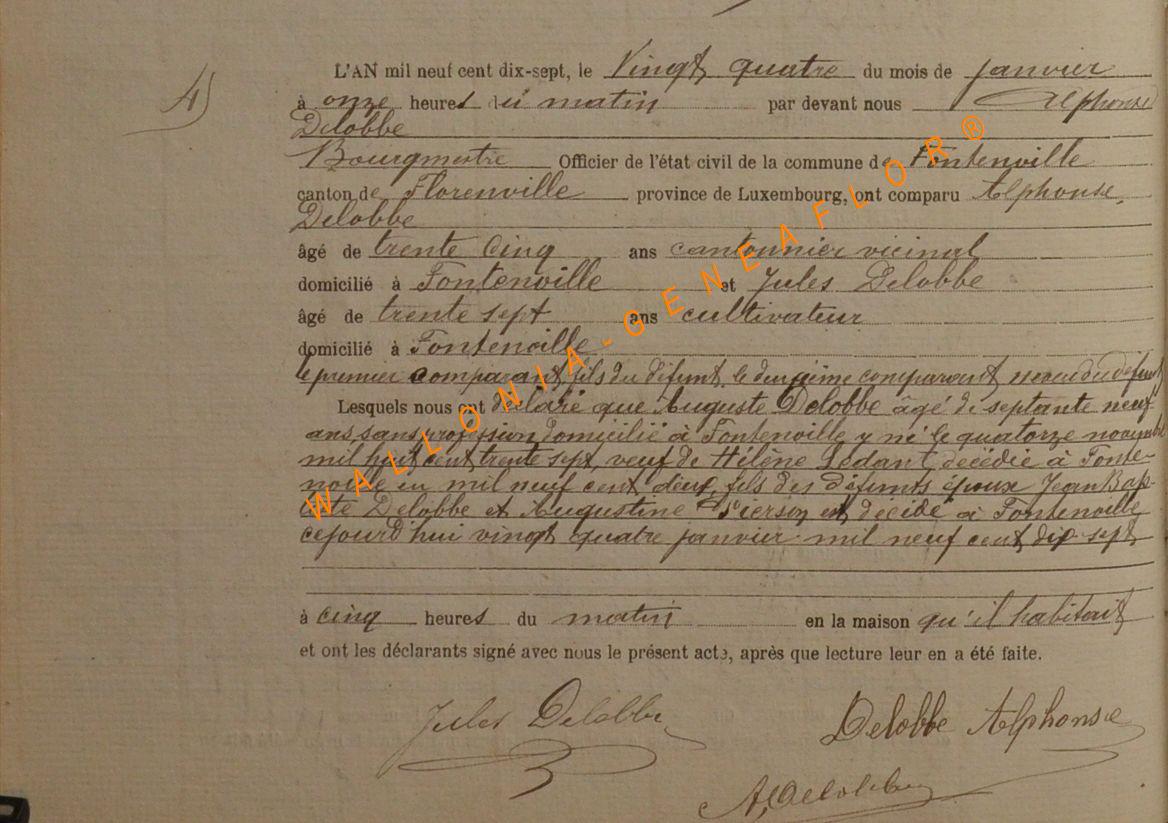 4)
L'AN mil neuf cent dix-sept, le Vingt quatre du mois de janvier
à onze heures du matin par devant nous Alphonse
Delobbe
Bourgmestre Officier de l'état civil de la commune de Fontenoille
canton de Florenville province de Luxembourg, ont comparu Alphonse
Delobbe
âgé de trente cinq ans cantonnier vicinal
domicilié à Fontenoille et Jules Delobbe
âgé de trente sept ans cultivateur
domicilié à Fontenoille
le premier comparant, fils du défunt, le deuxième comparant neveu du défunt
Lesquels nous ont déclaré que Auguste Delobbe âgé de septante neuf
ans sans profession domicilié à Fontenoille y né le quatorze novembre
mil huit cent trente sept, veuf de Hélène Ledant, décédée à Fonte-
noille en mil neuf cent deux, fils des défunts époux Jean Bap-
tiste Delobbe et Augustine Pierson est décédé à Fontenoille
cejourd'hui vingt quatre janvier mil neuf cent dix sept
à cinq heures du matin en la maison qu'il habitait
et ont les déclarants signé avec nous le présent acte, après que lecture leur en a été faite.
Jules Delobbe
Delobbe Alphonse
A. Delobbe
WALLONIA-GENEAFLOR®